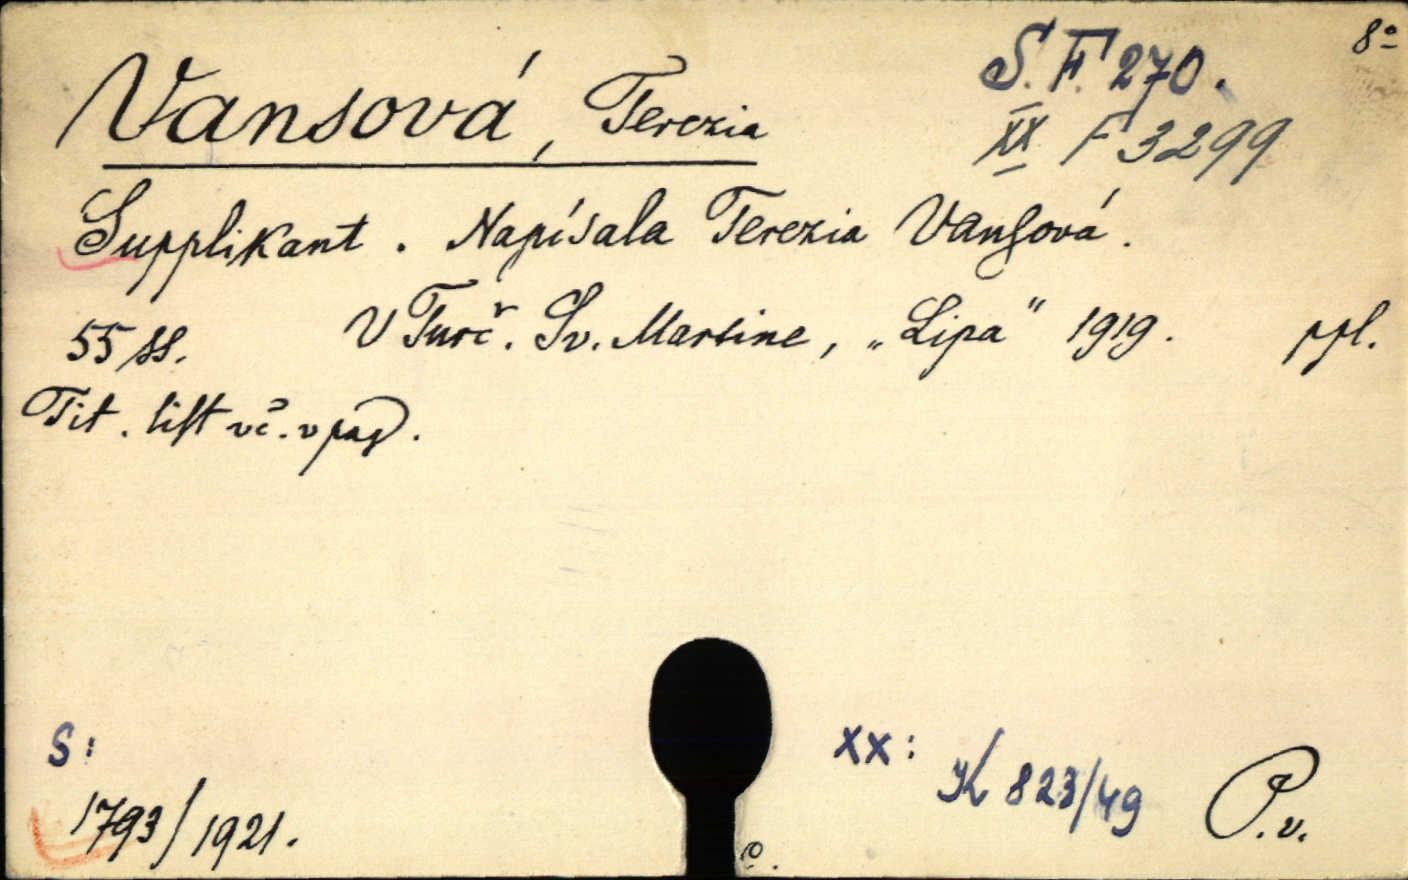 8°
S. F. 270.
XX F 3299
Vansová, Terezia
Supplikant. Napísala Terezia Vanſová.
55 ss. V Turč. Sv. Martine, „Lipa" 1919. ppl.
Tit. liſt vč. v pag.
S: XX:
1793/1921. K 823/49 P.v.